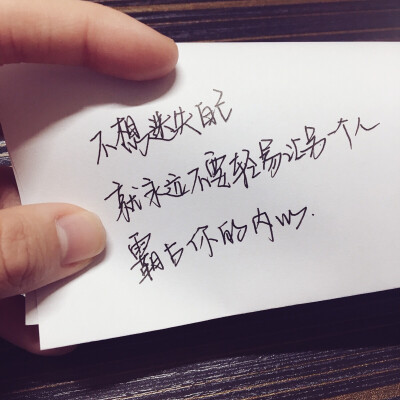 不想迷失自己
就永远不要轻易让另一个人
霸占你的内心.